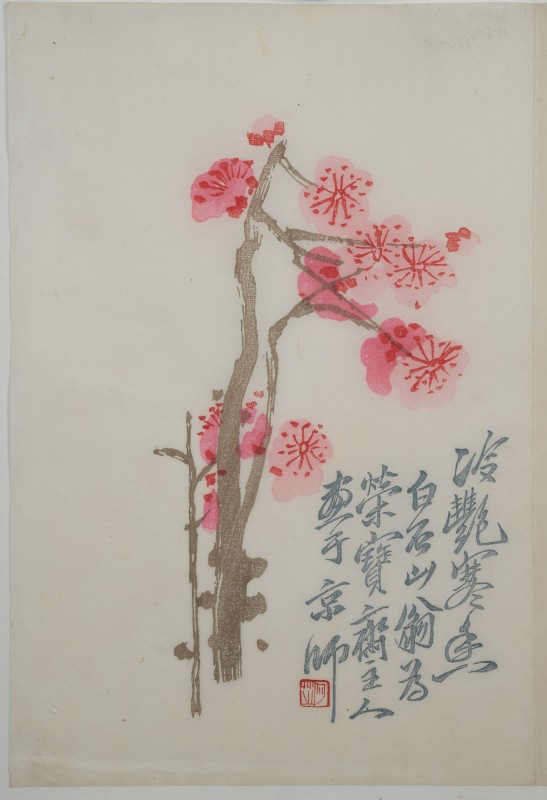 冷艷寒香
白石山翁為
榮寶齋主人
畫于京師
阿芝